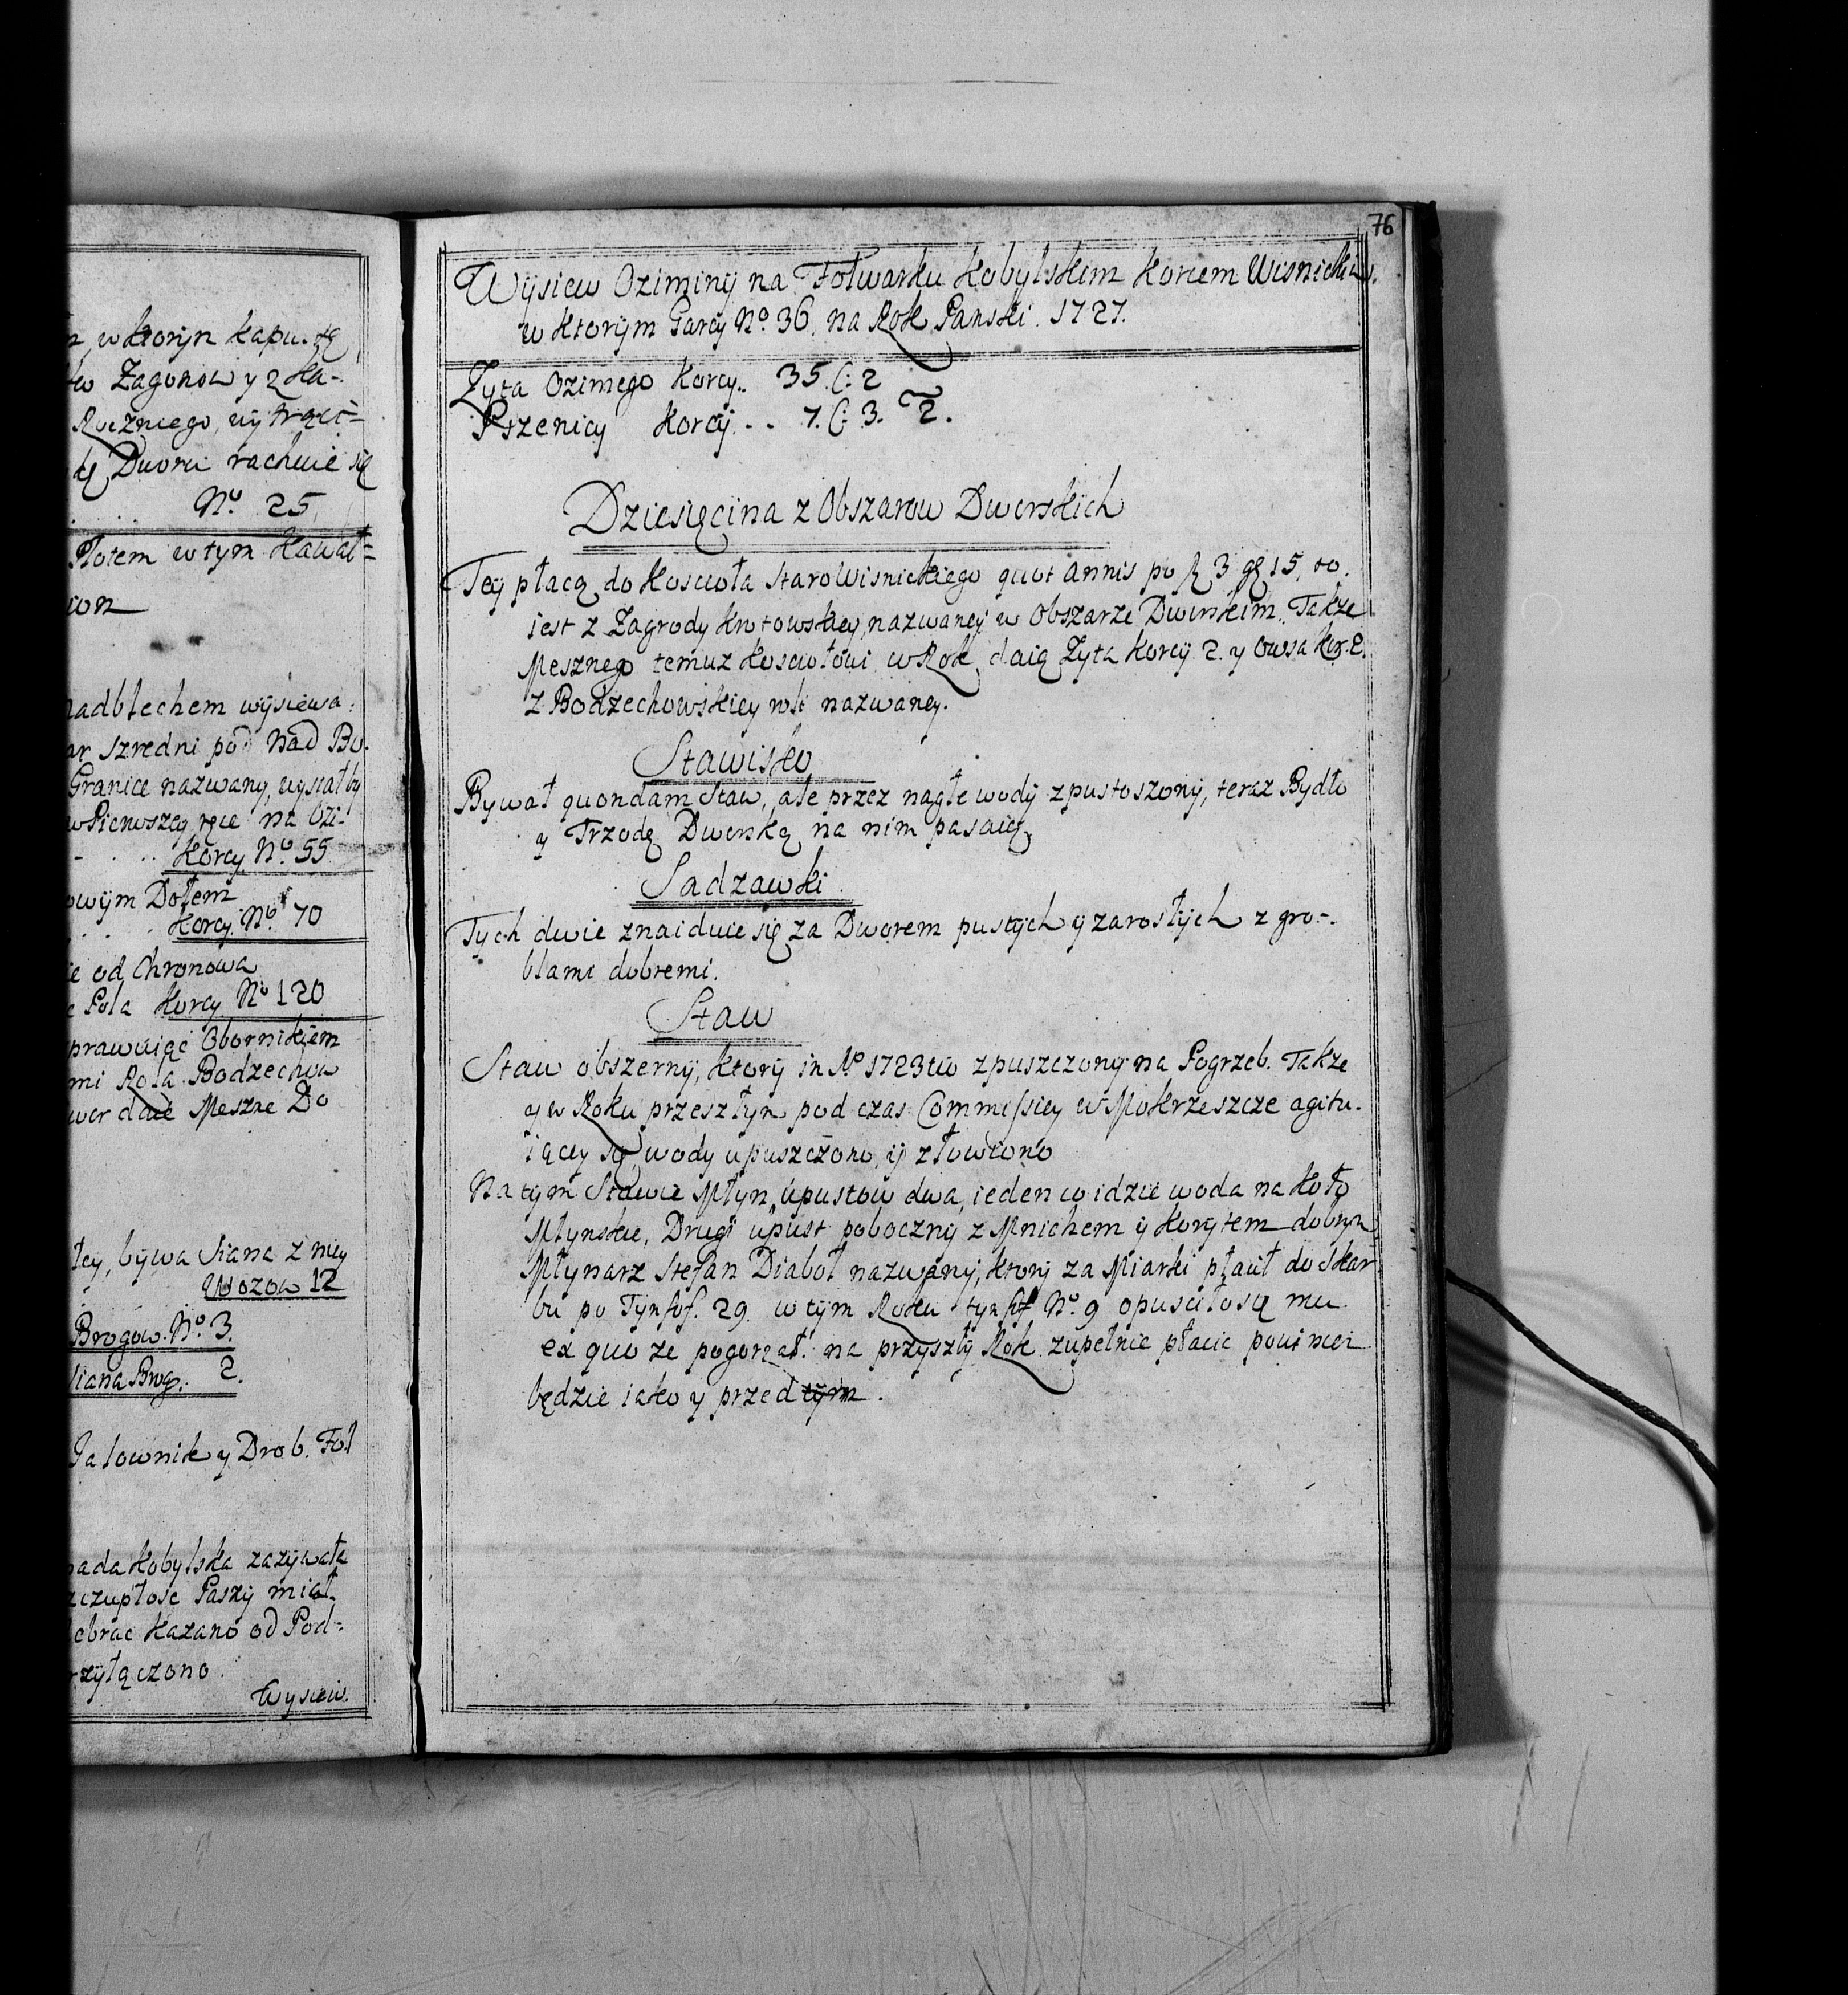 n, w ktorÿn kapu-tę
tw Zagonow y 2 ka-
Ruczniego, uÿtrąci=
tę Dworu rachuie się
. . . . . Nº 25
Płotem w tym kawał=
ion
nadblechem wÿsiewa:
ar szredni pod nad Bu.
Granice nazwany, uysiałby
w Pierwszey ręce na Ozi-
- . . . . Korcy Nº. 55
owÿm Dołem
. . . . Korcy. Nº. 70
ie od Chronowa
e Pola Korcy Nº 120
prawuiąc Obornikiem
mi Rola Bodzechow
wor daie Meszne Do
łey, bÿwa Siana z niey
Wozow 12
Brogow. Nº. 3.
Siana Brog. 2.
Jałownik y Drob. Fol
ada Kobylska zazÿwała
zczupłosc Paszy miał.
ebrac kazano od Pod=
rzÿłączono.
Wysiew.
76
Wÿsiew Oziminÿ na Fołwarku Kobylskim Korcem Wisnickim.
w ktorÿm Garcÿ Nº. 36. na Rok Panski. 1727.
Zyta Ozimego Korcy.. 35. C: 2
Pszenicy Korcÿ... 7. C: 3. 2.
Dziesięcina z Obszarow Dworskich
Tey płacą do Koscioła StaroWisnickiego quot Annis po f 3 gr 15, to.
iest z Zagrody Knotowskiey nazwaney w Obszarze Dworskim. Takze
Mesznego temuz Kosciołowi w Rok daią Zyta Korcÿ 2. y Owsa Kor. 2.
z Bodzechowskiey roli nazwaney.
Stawisko
Bywał quondam Staw, ale przez nagłe wodÿ zpustoszonÿ, teraz Bydło
y Trzodę Dworską na nim pasaią.
Sadzawki
Tych dwie znaiduie się za Dworem pustÿch ÿ zarosłÿch z gro-
blami dobremi.
Staw
Staw obszernÿ, ktorÿ in Aº 1723tio zpuszczony na Pogrzeb. Takze
y w Roku przeszłÿn pod czas Commissiey w Mokrzeszcze agitu-
iącey się wody upuszczono, ÿ złowiono
Na tÿm Stawie Młyn, upustow dwa, ieden co idzie woda na Koło
Młynskie, Drugi upust pobocznÿ z Mnichem ÿ Korytem dobryn
Młÿnarz Stefan Diaboł nazwanÿ, ktorÿ za Miarki płacił do Skar
bu po Tynfof. 29. w tÿm Roku tynfof Nº. 9 opusciłosię mu
ex quo ze pogorzał. na przyszłÿ Rok zupełnie płacic powinien
będzie iako y przedtÿm.